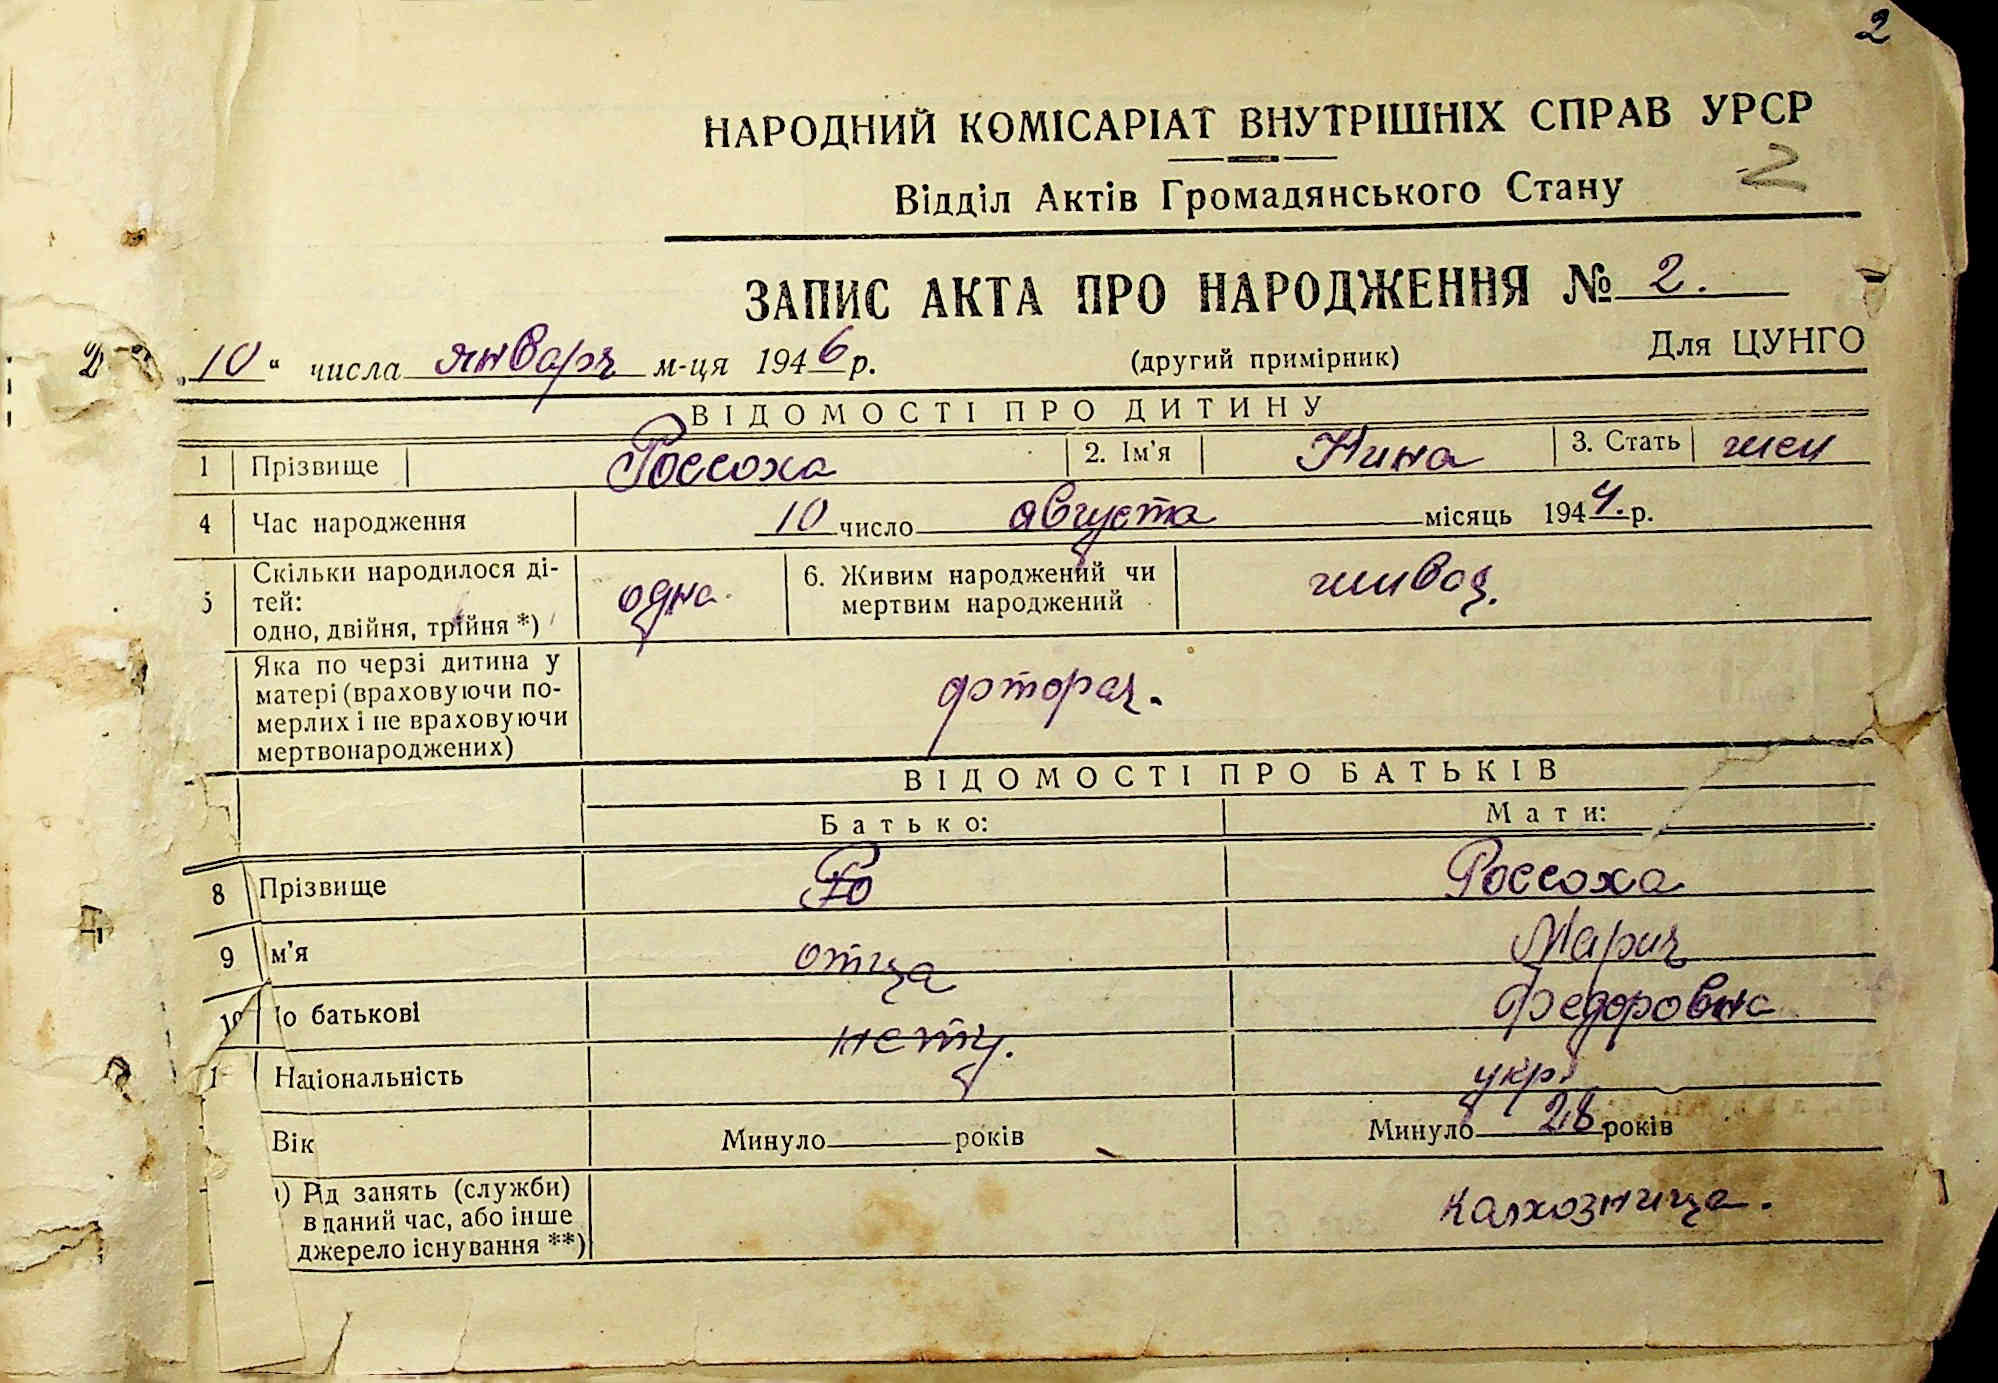 2
НАРОДНИЙ КОМІСАРІАТ ВНУТРІШНІХ СПРАВ УРСР
Відділ Актів Громадянського Стану
2
ЗАПИС АКТА ПРО НАРОДЖЕННЯ № 2.
„10“ числа января м-ця 1946 р. (другий примірник) Для ЦУНГО
ВІДОМОСТІ ПРО ДИТИНУ
1 Прізвище Россоха 2. Ім'я Нина 3. Стать жен
4 Час народження 10 число августа місяць 1944. р.
5 Скільки народилося ді-
тей:
одно, двійня, трійня *) одна. 6. Живим народжений чи
мертвим народжений живая.
Яка по черзі дитина у
матері (враховуючи по-
мерлих і не враховуючи
мертвонароджених) фторая.
ВІДОМОСТІ ПРО БАТЬКІВ
Батько: Мати:
8 Прізвище Ро Россоха
9 м'я отца Мария
10 о батькові нету. Федоровна
1 Національність укр.
Вік Минуло років Минуло 28 років
) Рід занять (служби)
в даний час, або інше
джерело існування **) Калхозница.